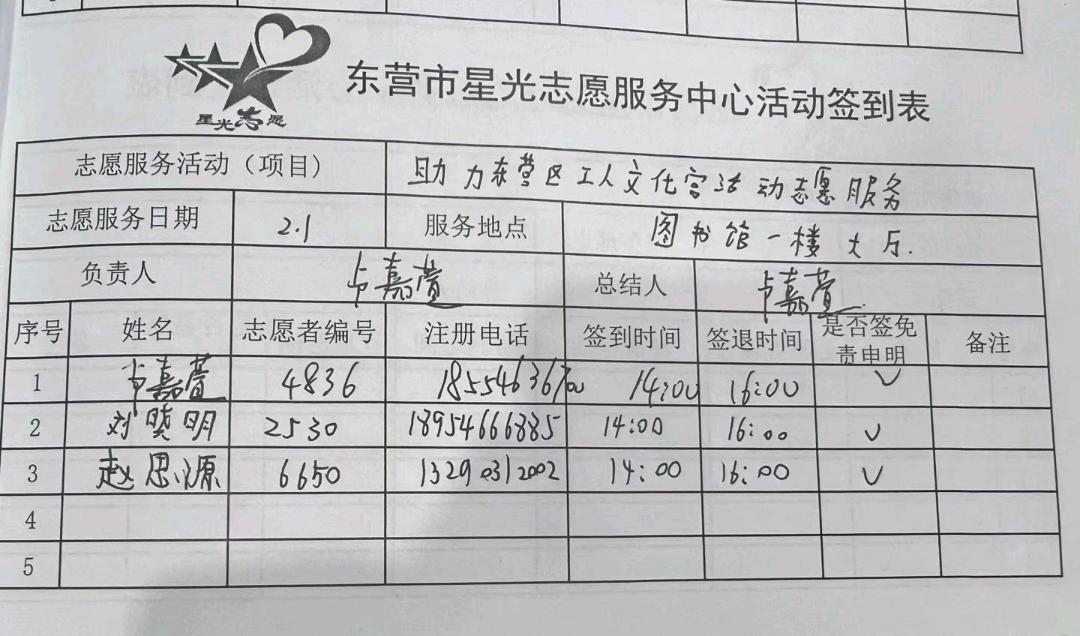 星光志愿
东营市星光志愿服务中心活动签到表
志愿服务活动（项目） 助力东营区工人文化宫活动志愿服务
志愿服务日期 2.1 服务地点 图书馆一楼大厅.
负责人 卢嘉萱 总结人 卢嘉萱
序号 姓名 志愿者编号 注册电话 签到时间 签退时间 是否签免责申明 备注
1 卢嘉萱 4836 14:00 16:00 ✓
2 刘晓明 2530 18954666885 14:00 16:00 ✓
3 赵思源 6650 13290312002 14:00 16:00 ✓
4
5